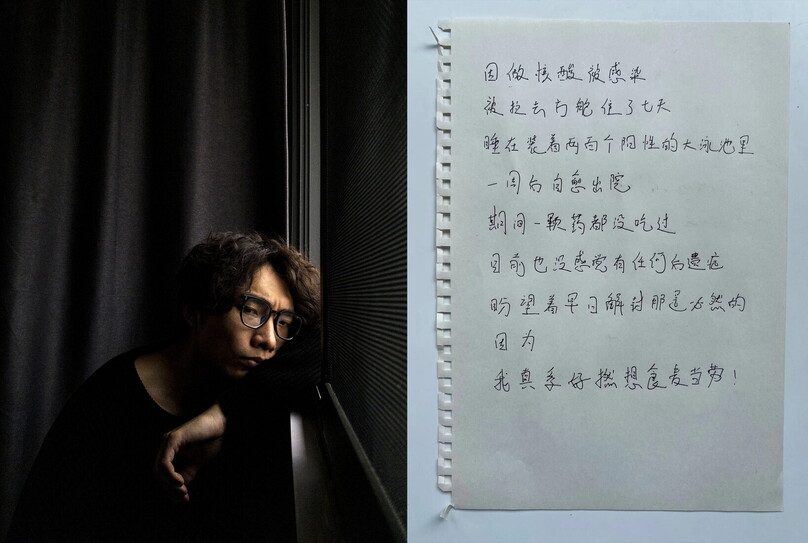 因做核酸被感染
被拉去方舱住了七天
睡在装着两百个阳性的大泳池里
一周后自愈出院
期间一颗药都没吃过
目前也没感觉有任何后遗症
盼望着早日解封那是必然的
因为
我真系好撚想食麦当劳！